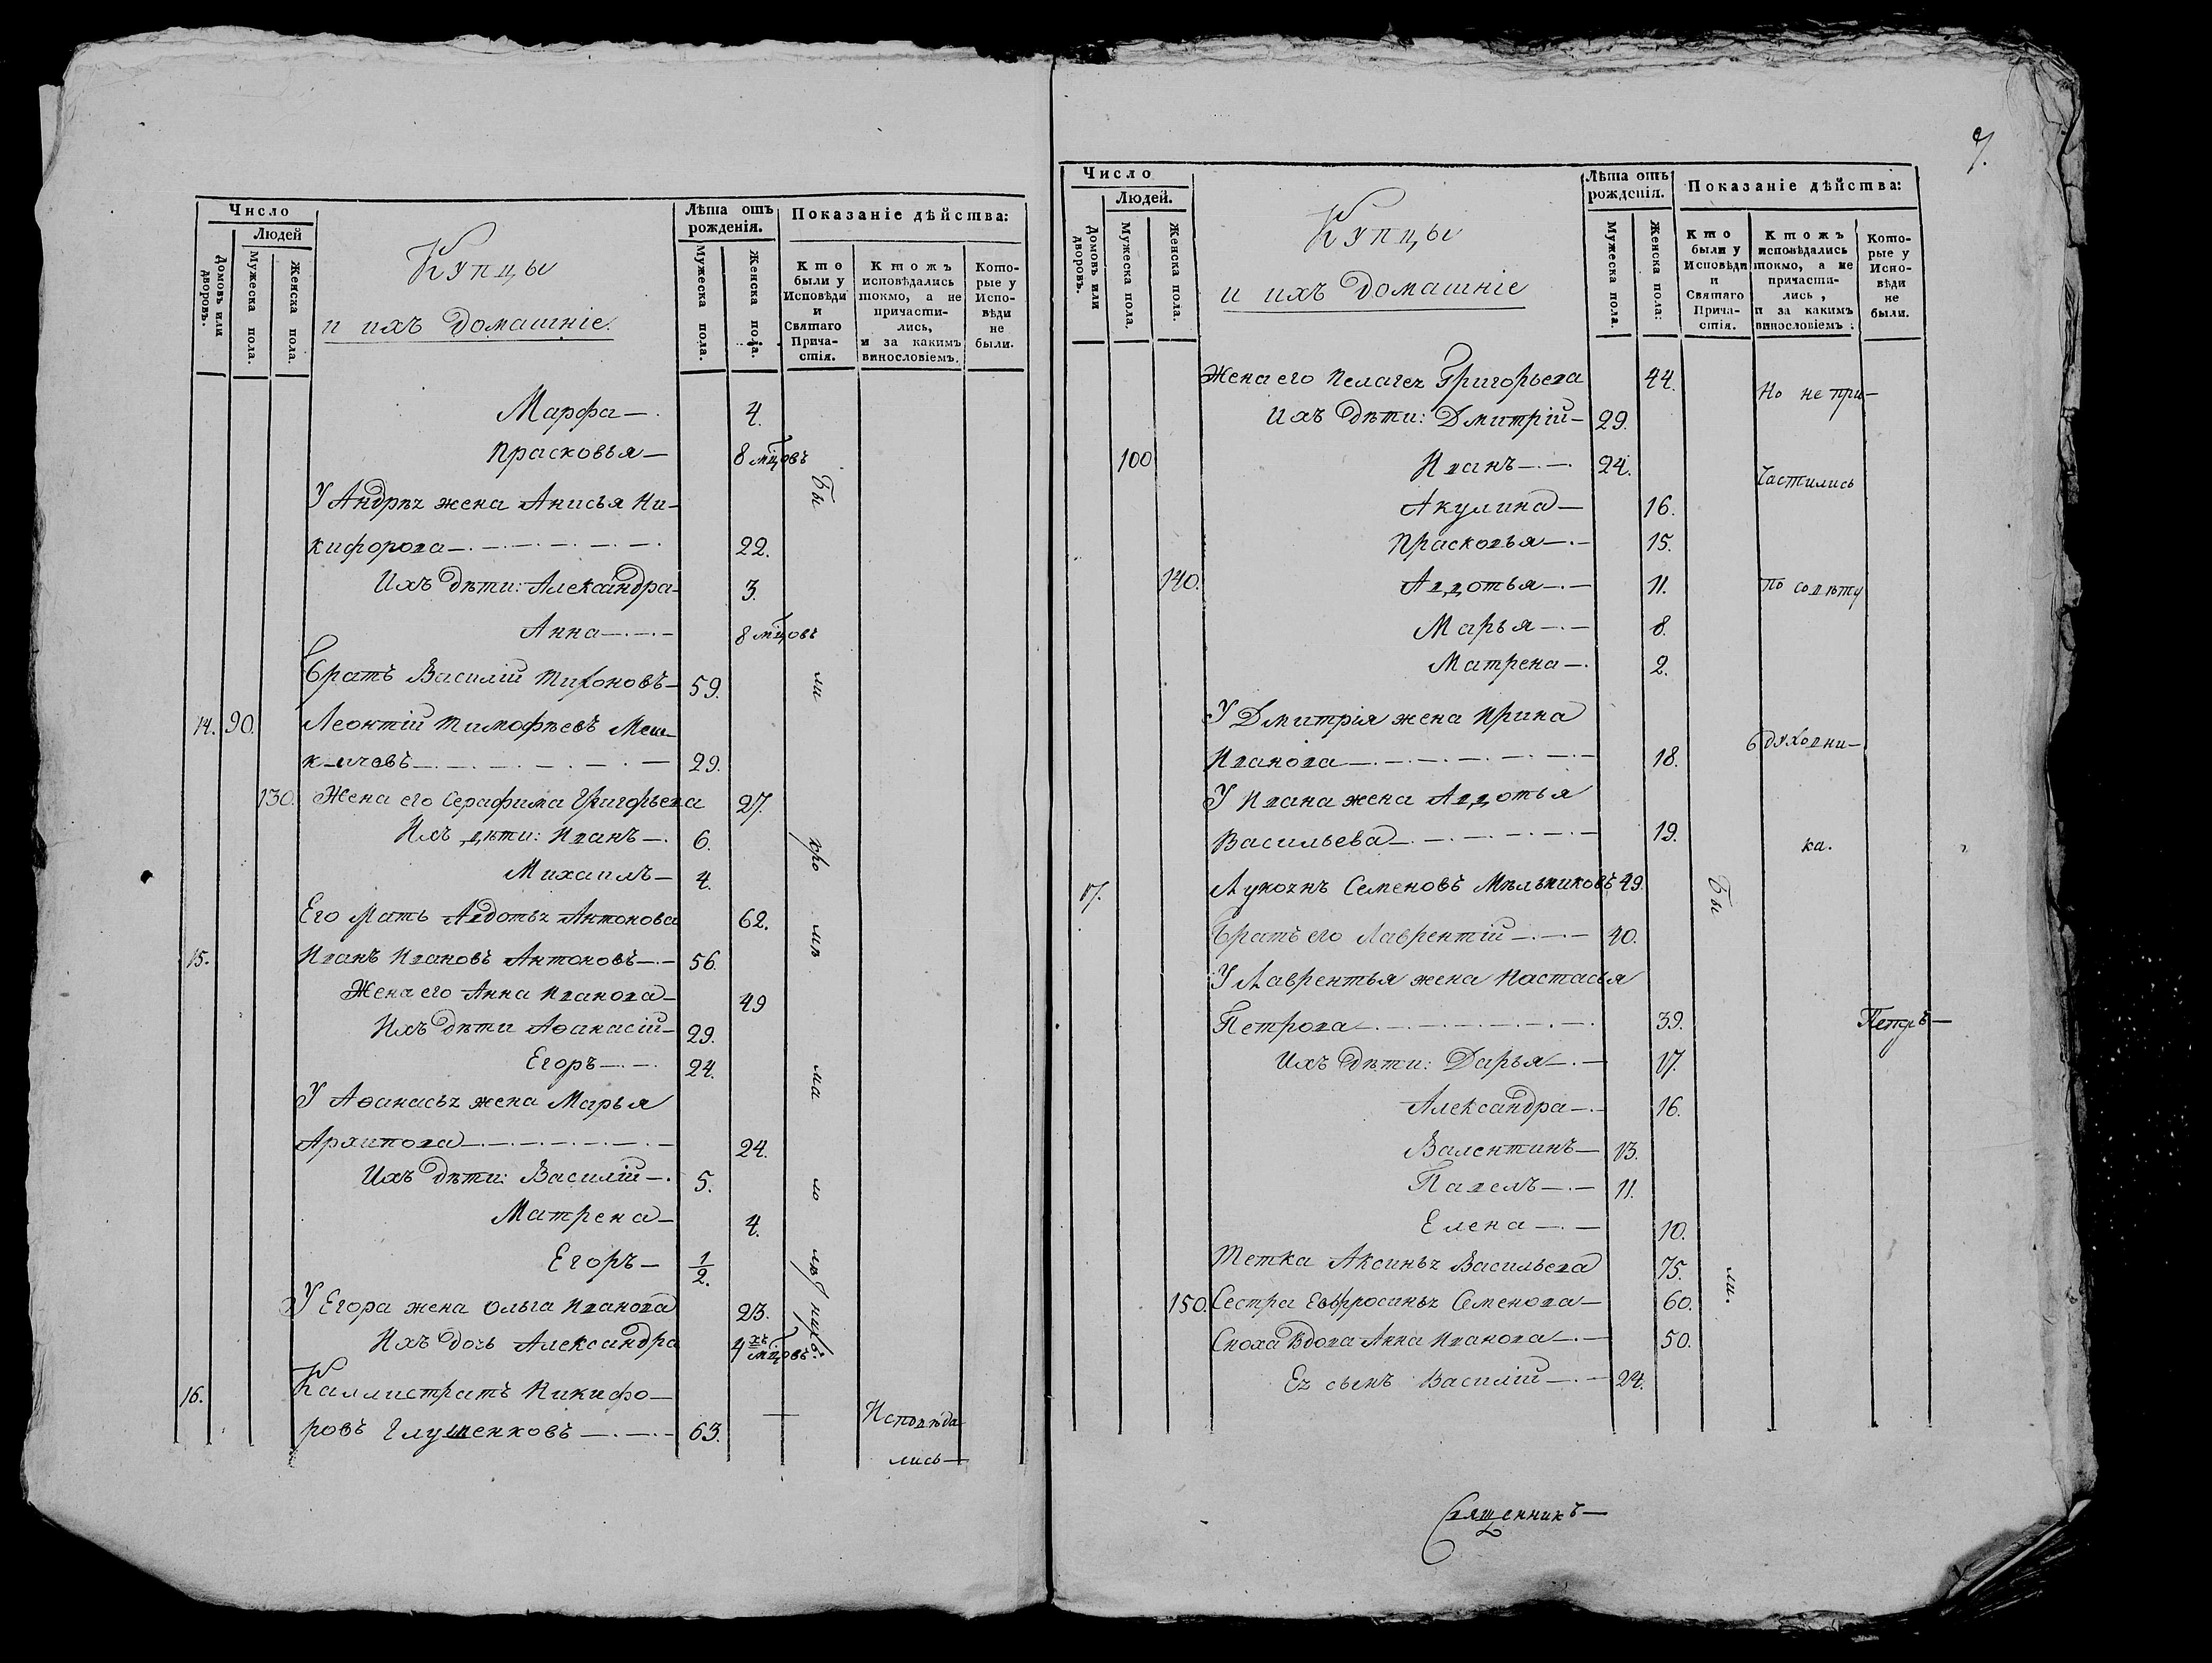 Число
Людей
Домовъ или дворовъ.
Мужеска пола.
Женска пола.
Купцы
и ихъ домашніе.
Лѣта отъ рожденія.
Мужеска пола.
Женска пола.
Показаніе дѣйства:
Кто были у Исповѣди и Святаго Причастія.
Ктожъ исповѣдались токмо, а не причастились, и за какимъ винословіемъ.
Которые у Исповѣди не были.
Марфа —. 4.
Прасковья — 8 мцовъ
Бы
У Андрея жена Анисья Ни-
кифорова — 22.
Ихъ дѣти: Александра 3.
Анна — 8 мцовъ
Братъ Василій Тихоновъ — 59.
ли
14. 90. Леонтій Тимофѣевъ
29.
130. Жена его Серафима Григорьева 27.
Ихъ дѣти: Иванъ —. 6.
кро
Михаилъ — 4.
Его Мать Авдотья Антонова 62.
мѣ
15. Иванъ Ивановъ Антоновъ — 56.
Жена его Анна Иванова — 49
Ихъ дѣти Аѳанасій — 29.
Егоръ — 24.
ма
У Аѳанасья жена Марья
Архипова — 24.
Ихъ дѣти: Василій —. 5.
ло
Матрена — 4.
Егоръ — 1/2.
лѣтнихъ.
У Егора жена Ольга Иванова 23.
Ихъ дочь Александра 4хъ мцовъ
16. Каллистратъ Никифо-
ровъ Глушенковъ — 63.
Исповѣда
лись —
7.
Число
Людей.
Домовъ или дворовъ.
Мужеска пола.
Женска пола.
Купцы
и ихъ домашніе
Лѣта отъ рожденія.
Мужеска пола.
Женска пола:
Показаніе дѣйства:
Кто были у Исповѣди и Святаго Причастія.
Ктожъ исповѣдались токмо, а не причастились, и за какимъ винословіемъ.
Которые у Исповѣди не были.
Жена его Пелагея Григорьева 44.
Но не при-
Ихъ дѣти: Дмитрій — 29.
100 Иванъ — 24.
частились
Акулина — 16.
Прасковья — 15.
140. Авдотья — 11.
по совѣту
Марья — 8.
Матрена —. 2.
У Дмитрія жена Ирина
Иванова — 18.
духовни-
У Ивана жена Авдотья
Васильева — 19.
ка.
17. Семеновъ Мѣльниковъ 49.
Бы
Братъ его Лаврентій — 40.
У Лаврентья жена Настасья
Петрова — 39.
Петръ —
Ихъ дѣти: Дарья —. 17.
Александра — 16.
Валентинъ — 13.
Павелъ — 11.
Елена — 10.
Тетка Аксинья Васильева 75.
ли.
150. Сестра Евфросинья Семенова — 60.
Сноха Вдова Анна Иванова — 50.
Ея сынъ Василій — 24.
Священникъ —